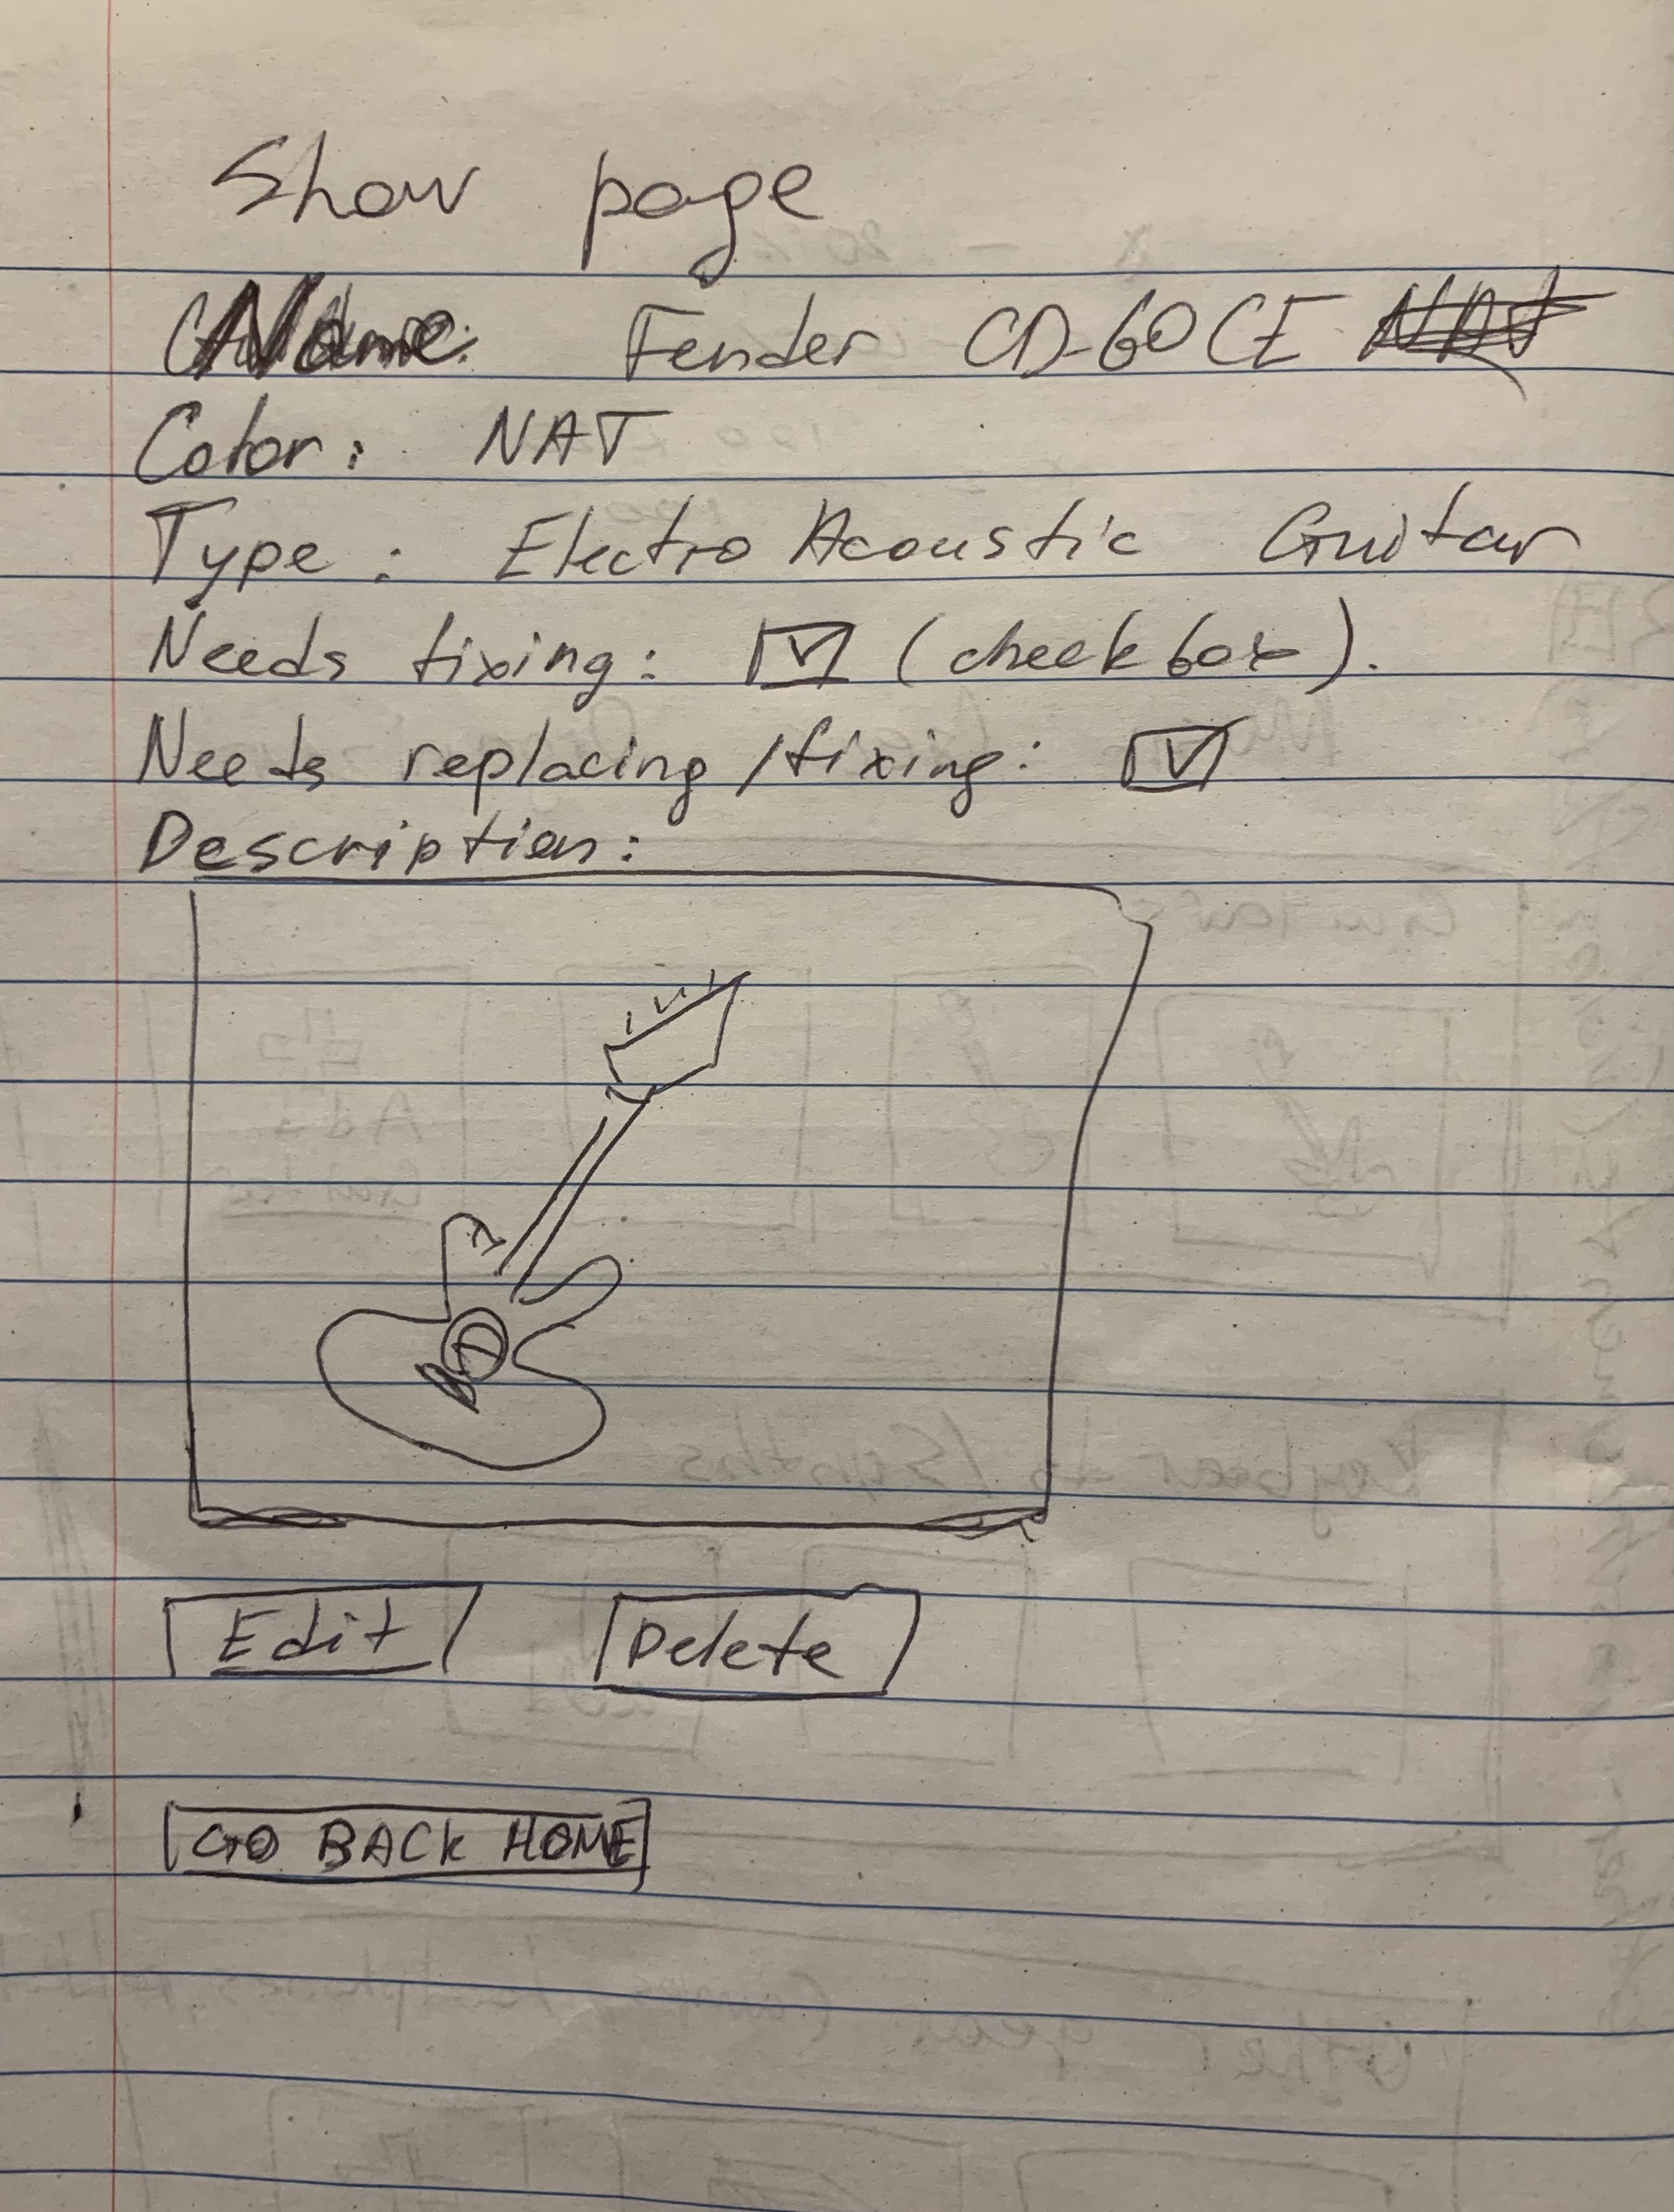 Show page
Name: Fender CD-60CE NAT
Color: NAT
Type: Electro Acoustic Guitar
Needs fixing: (check box).
Needs replacing/fixing:
Description:
Edit Delete
GO BACK HOME